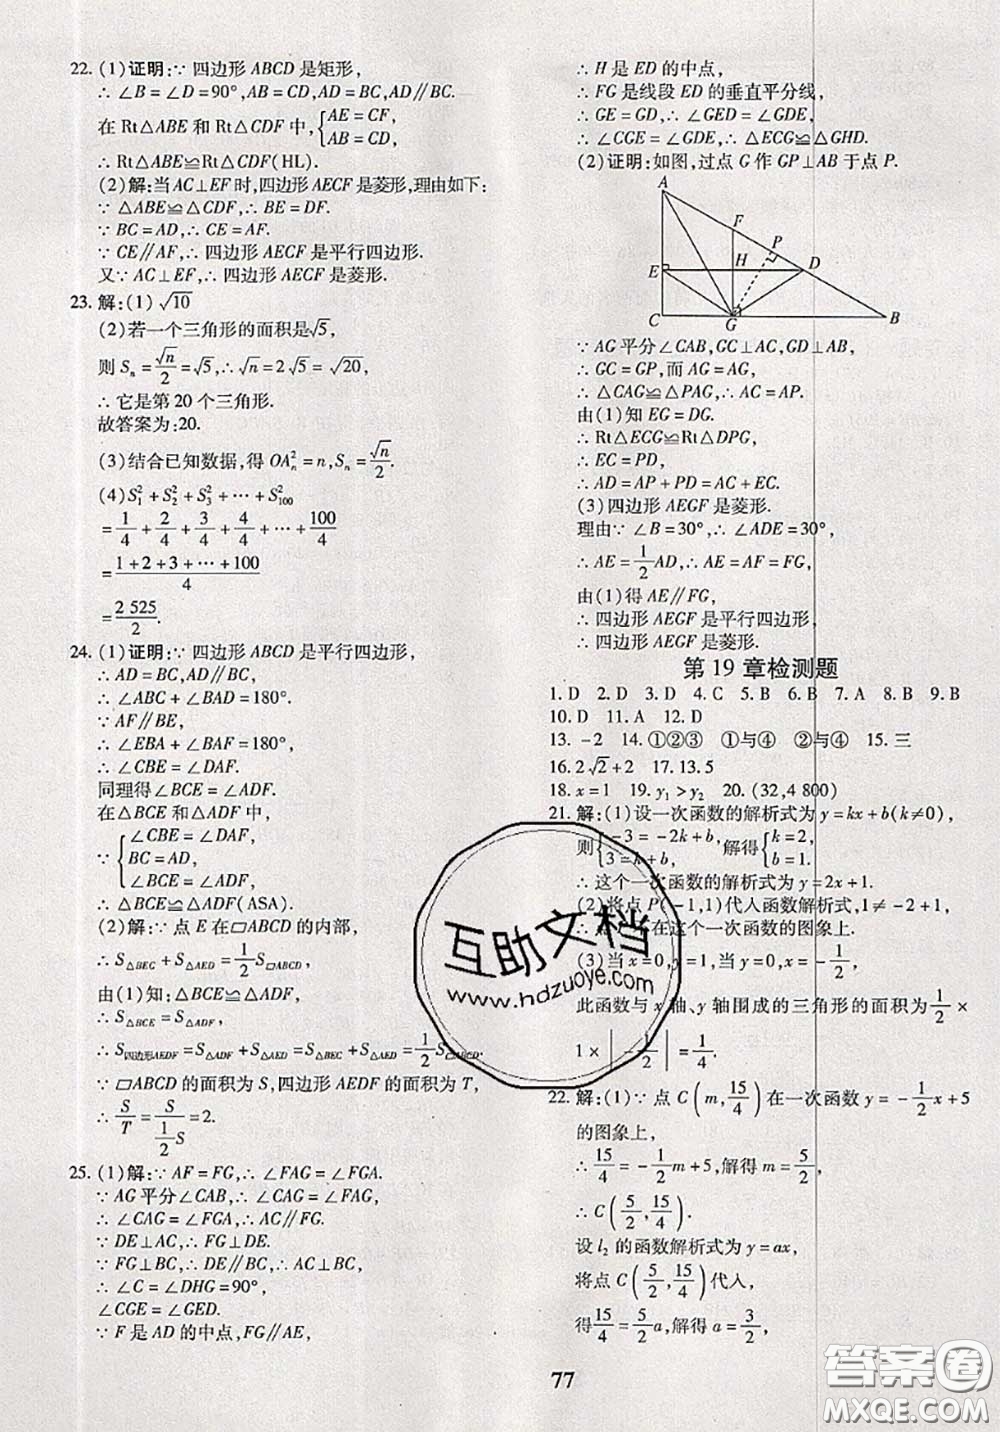 22. (1)证明:∵ 四边形 ABCD 是矩形,
∴ ∠B = ∠D = 90°, AB = CD, AD = BC, AD∥BC.
在 Rt△ABE 和 Rt△CDF 中, { AE = CF, AB = CD,
∴ Rt△ABE≌Rt△CDF(HL).
(2)解:当 AC⊥EF 时,四边形 AECF 是菱形,理由如下:
∵ △ABE≌△CDF, ∴ BE = DF.
∵ BC = AD, ∴ CE = AF.
∵ CE∥AF, ∴ 四边形 AECF 是平行四边形.
又∵ AC⊥EF, ∴ 四边形 AECF 是菱形.
23. 解:(1) √10
(2)若一个三角形的面积是√5,
则 Sₙ = √n/2 = √5, ∴ √n = 2√5 = √20,
∴ 它是第 20 个三角形.
故答案为:20.
(3)结合已知数据,得 OAₙ² = n, Sₙ = √n/2.
(4) S₁² + S₂² + S₃² + ⋯ + S₁₀₀²
= 1/4 + 2/4 + 3/4 + 4/4 + ⋯ + 100/4
= (1+2+3+⋯+100)/4
= 2 525/2.
24. (1)证明:∵ 四边形 ABCD 是平行四边形,
∴ AD = BC, AD∥BC,
∴ ∠ABC + ∠BAD = 180°.
∵ AF∥BE,
∴ ∠EBA + ∠BAF = 180°,
∴ ∠CBE = ∠DAF.
同理得∠BCE = ∠ADF.
在△BCE 和△ADF 中,
∵ { ∠CBE = ∠DAF, BC = AD, ∠BCE = ∠ADF,
∴ △BCE≌△ADF(ASA).
(2)解:∵ 点 E 在▱ABCD 的内部,
∴ S△BEC + S△AED = 1/2 S▱ABCD,
由(1)知:△BCE≌△ADF,
∴ S△BCE = S△ADF,
∴ S四边形AEDF = S△ADF + S△AED = S△BEC + S△AED = 1/2 S▱ABCD.
∵ ▱ABCD 的面积为 S,四边形 AEDF 的面积为 T,
∴ S/T = S/(1/2 S) = 2.
25. (1)解:∵ AF = FG, ∴ ∠FAG = ∠FGA.
∵ AG 平分∠CAB, ∴ ∠CAG = ∠FAG,
∴ ∠CAG = ∠FGA, ∴ AC∥FG.
∵ DE⊥AC, ∴ FG⊥DE.
∵ FG⊥BC, ∴ DE∥BC, ∴ AC⊥BC,
∴ ∠C = ∠DHG = 90°,
∠CGE = ∠GED.
∵ F 是 AD 的中点, FG∥AE,
∴ H 是 ED 的中点,
∴ FG 是线段 ED 的垂直平分线,
∴ GE = GD, ∴ ∠GED = ∠GDE,
∴ ∠CGE = ∠GDE, ∴ △ECG≌△GHD.
(2)证明:如图,过点 G 作 GP⊥AB 于点 P.
A
F
P
E
H
D
C
G
B
∵ AG 平分∠CAB, GC⊥AC, GD⊥AB,
∴ GC = GP,而 AG = AG,
∴ △CAG≌△PAG, ∴ AC = AP.
由(1)知 EG = DG.
∴ Rt△ECG≌Rt△DPG,
∴ EC = PD,
∴ AD = AP + PD = AC + EC.
(3)四边形 AEGF 是菱形.
理由∵ ∠B = 30°, ∴ ∠ADE = 30°,
∴ AE = 1/2 AD, ∴ AE = AF = FG,
由(1)得 AE∥FG,
∴ 四边形 AEGF 是平行四边形,
∴ 四边形 AEGF 是菱形.
第 19 章检测题
1. D 2. D 3. D 4. C 5. B 6. B 7. A 8. B 9. B
10. D 11. A 12. D
13. −2 14. ①②③ ①与④ ②与④ 15. 三
16. 2√2 + 2 17. 13.5
18. x = 1 19. y₁ > y₂ 20. (32, 4 800)
21. 解:(1)设一次函数的解析式为 y = kx + b(k≠0),
则 { −3 = −2k + b, 3 = k + b, 解得 { k = 2, b = 1.
∴ 这个一次函数的解析式为 y = 2x + 1.
(2)将点 P(−1,1)代入函数解析式, 1 ≠ −2 + 1,
∴ 点 P 不在这个一次函数的图象上.
(3)当 x = 0, y = 1,当 y = 0, x = −1/2,
此函数与 x 轴、y 轴围成的三角形的面积为 1/2 ×
1 × |−1/2| = 1/4.
22. 解:(1)∵ 点 C(m, 15/4)在一次函数 y = −1/2 x + 5
的图象上,
∴ 15/4 = −1/2 m + 5,解得 m = 5/2,
∴ C(5/2, 15/4).
设 l₂ 的函数解析式为 y = ax,
将点 C(5/2, 15/4)代入,
得 15/4 = 5/2 a,解得 a = 3/2,
77
互助文档
www.hdzuoye.com
答案圈
MXQE.COM